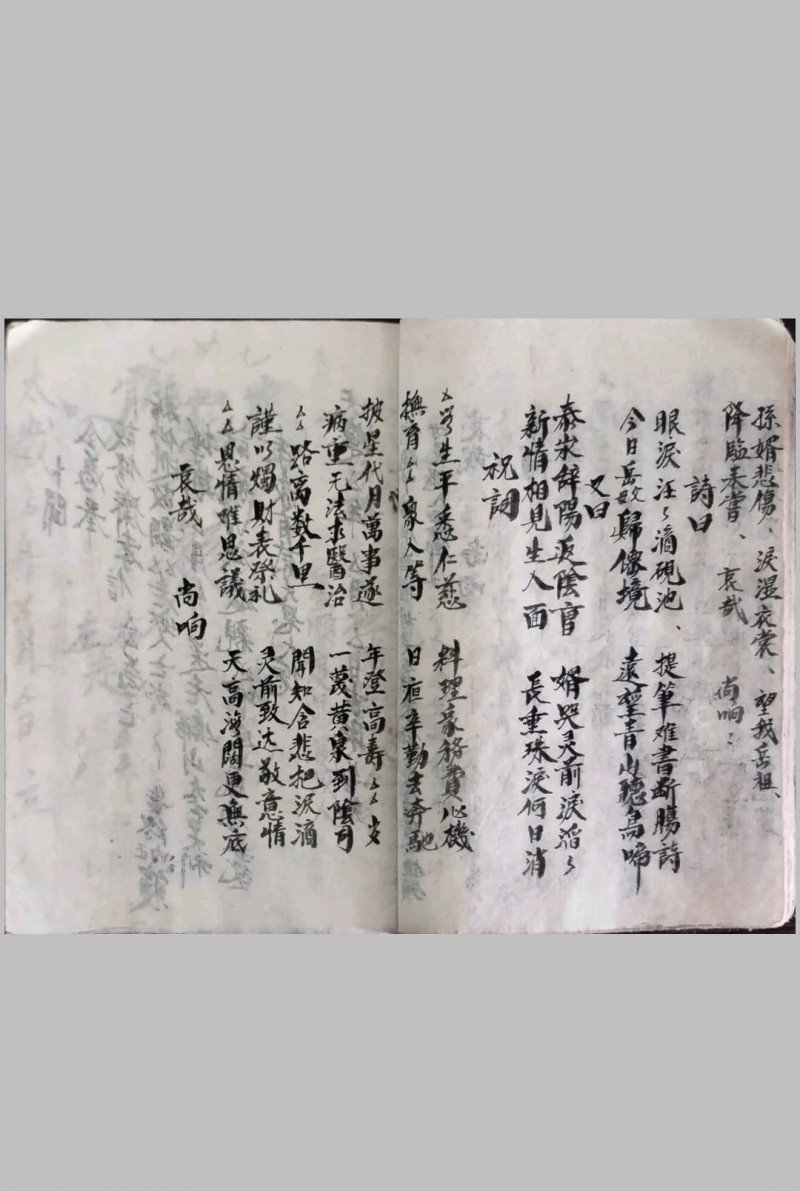 孫婿悲傷、淚濕衣裳、望我岳祖、
降臨来嘗、哀哉 尚响:
詩曰
眼淚汪々滴硯池、提筆难書断腸詩
今日岳歸僊境 遠望青山聽鳥啼
又曰
泰家辞陽返陰官 婿哭灵前淚滔々
新情相見生人面 長垂珠淚何日消
祝詞
生平悉仁慈 料理家務費心機
撫育ㄙㄙ家人等 日夜辛勤去奔馳
披星代月萬事遂 年澄高壽ㄙㄙ岁
病重无法求醫治 一夢黄泉到陰司
ㄙㄙ路离数千里 聞知含悲把淚滴
謹以燭財表祭礼 灵前致达敬意情
ㄙㄙ恩情难思議 天高海闊更無底
哀哉 尚响